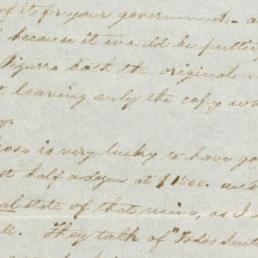 of it for your government - a
because it would be putter
Pizarro both the original
leaving only the copy wh
is very lucky to have go
half a dozen at $1500.
state of that mine, as I
They talk of "Todos Sant